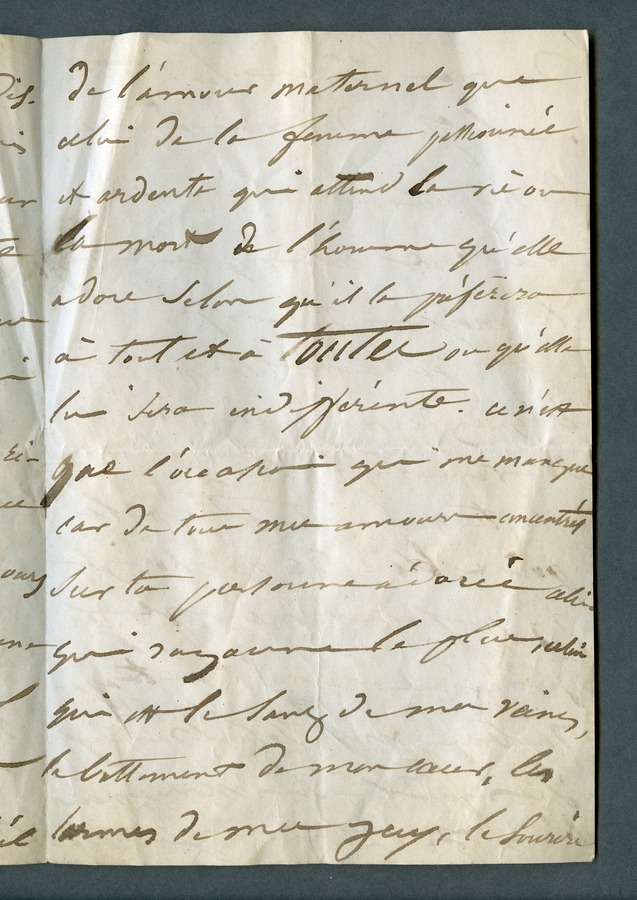 de l'amour maternel que
celui de la femme passionnée
et ardente qui attend la vie ou
la mort de l'homme qu'elle
adore selon qu'il la préférera
à tout et à Toutes ou qu'elle
lui sera indifférente. ce n'est
que l'occasion qui me manque
car de tous mes amours concentrés
sur ta personne adorée celui
qui rayonne le plus, celui
qui est le sang de mes veines,
le battement de mon cœur, les
larmes de mes yeux, le sourire